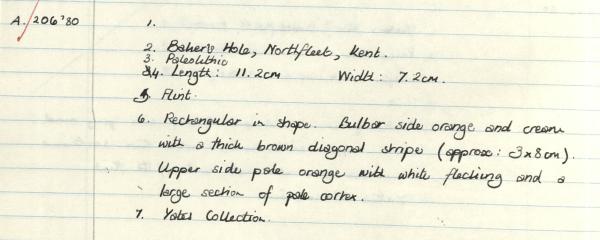 A. 206'80 1.
2. Baker's Hole, Northfleet, Kent.
3. Paleolithic
4. Length: 11.2cm Width: 7.2cm.
5. Flint.
6. Rectangular in shape. Bulbar side orange and cream
with a thick brown diagonal stripe (approx: 3x8cm).
Upper side pale orange with white flecking and a
large section of pale cortex.
7. Yates Collection.